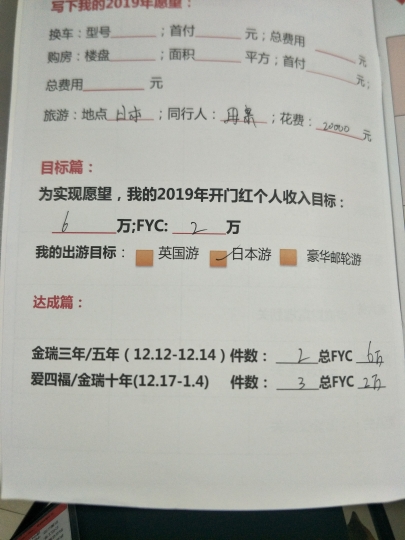 写下我的2019年愿望：
换车：型号______；首付____ 元；总费用____元
购房：楼盘______；面积____ 平方；首付____元；
总费用______ 元
旅游：地点 日本 ；同行人： ；花费：20000 元
目标篇：
为实现愿望，我的2019年开门红个人收入目标：
6 万;FYC: 2 万
我的出游目标： 英国游 ✓日本游 豪华邮轮游
达成篇：
金瑞三年/五年（12.12-12.14）件数： 2 总FYC 6万
爱四福/金瑞十年(12.17-1.4) 件数： 3 总FYC 2万